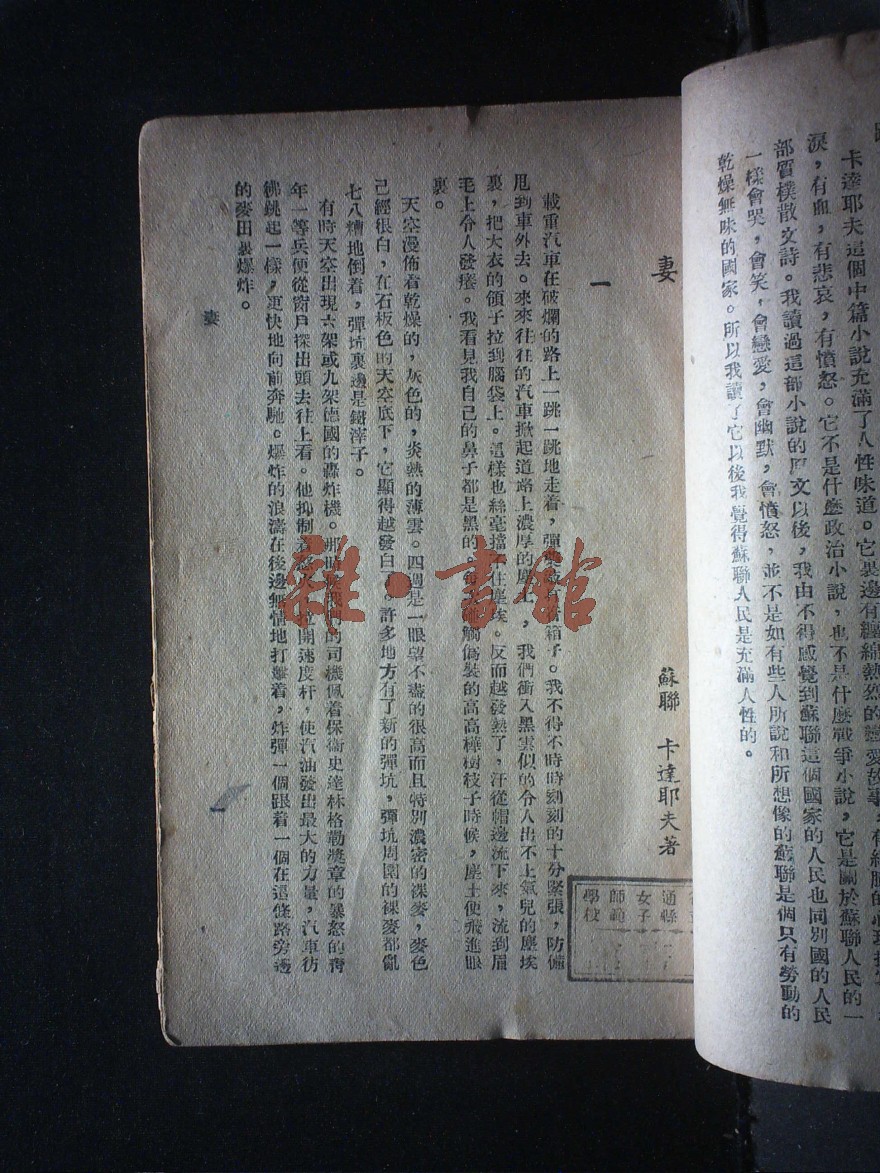 卡達耶夫這個中篇小說充滿了人性味道。它裏邊有纏綿熱烈的戀愛故事,有細膩的心理
淚,有血,有悲哀,有憤怒。它不是什麼政治小說,也不是什麼戰爭小說,它是關於蘇聯人民的一
部質樸散文詩。我讀過這部小說的原文以後,我由不得感覺到蘇聯這個國家的人民也同別國的人民
一樣會哭,會笑,會戀愛,會幽默,會憤怒,並不是如有些人所說和所想像的蘇聯是個只有勞動的
乾燥無味的國家。所以我讀了它以後我覺得蘇聯人民是充滿人性的。
妻
蘇聯 卡達耶夫著
一
載重汽車在破爛的路上一跳一跳地走着,彈藥箱子。我不得不時時刻刻的十分緊張,防備
甩到車外去。來來往往的汽車掀起道路上濃厚的塵土,我們衝入黑雲似的令人出不上氣兒的塵埃
裏,把大衣的領子拉到腦袋上。這樣也絲毫擋不住塵埃。反而越發熱了,汗從帽邊流下來,流到眉
毛上令人發癢。我看見我自己的鼻子都是黑的。觸偽裝的高高樺樹枝子時候,塵土便飛進眼
裏。
天空漫佈着乾燥的,灰色的,炎熱的薄雲。四週是一眼望不盡的很高而且特別濃密的裸麥,麥色
已經很白,在石板色的天空底下,它顯得越發白了。許多地方有了新的彈坑,彈坑周圍的裸麥都亂
七八糟地倒着,彈坑裏邊是鐵滓子。
有時天空出現六架或九架德國的轟炸機。那時我們的司機佩着保衛史達林格勒獎章的暴怒的青
年一等兵便從窗戶探出頭去往上看。他抑制着拉開速度杆,使汽油發出最大的力量,汽車彷
彿跳起一樣,更快地向前奔馳。爆炸的浪濤在後邊無情地打擊着,炸彈一個跟着一個在這條路旁邊
的麥田裏爆炸。
妻
通縣
女子
師範
學校
雜·書館